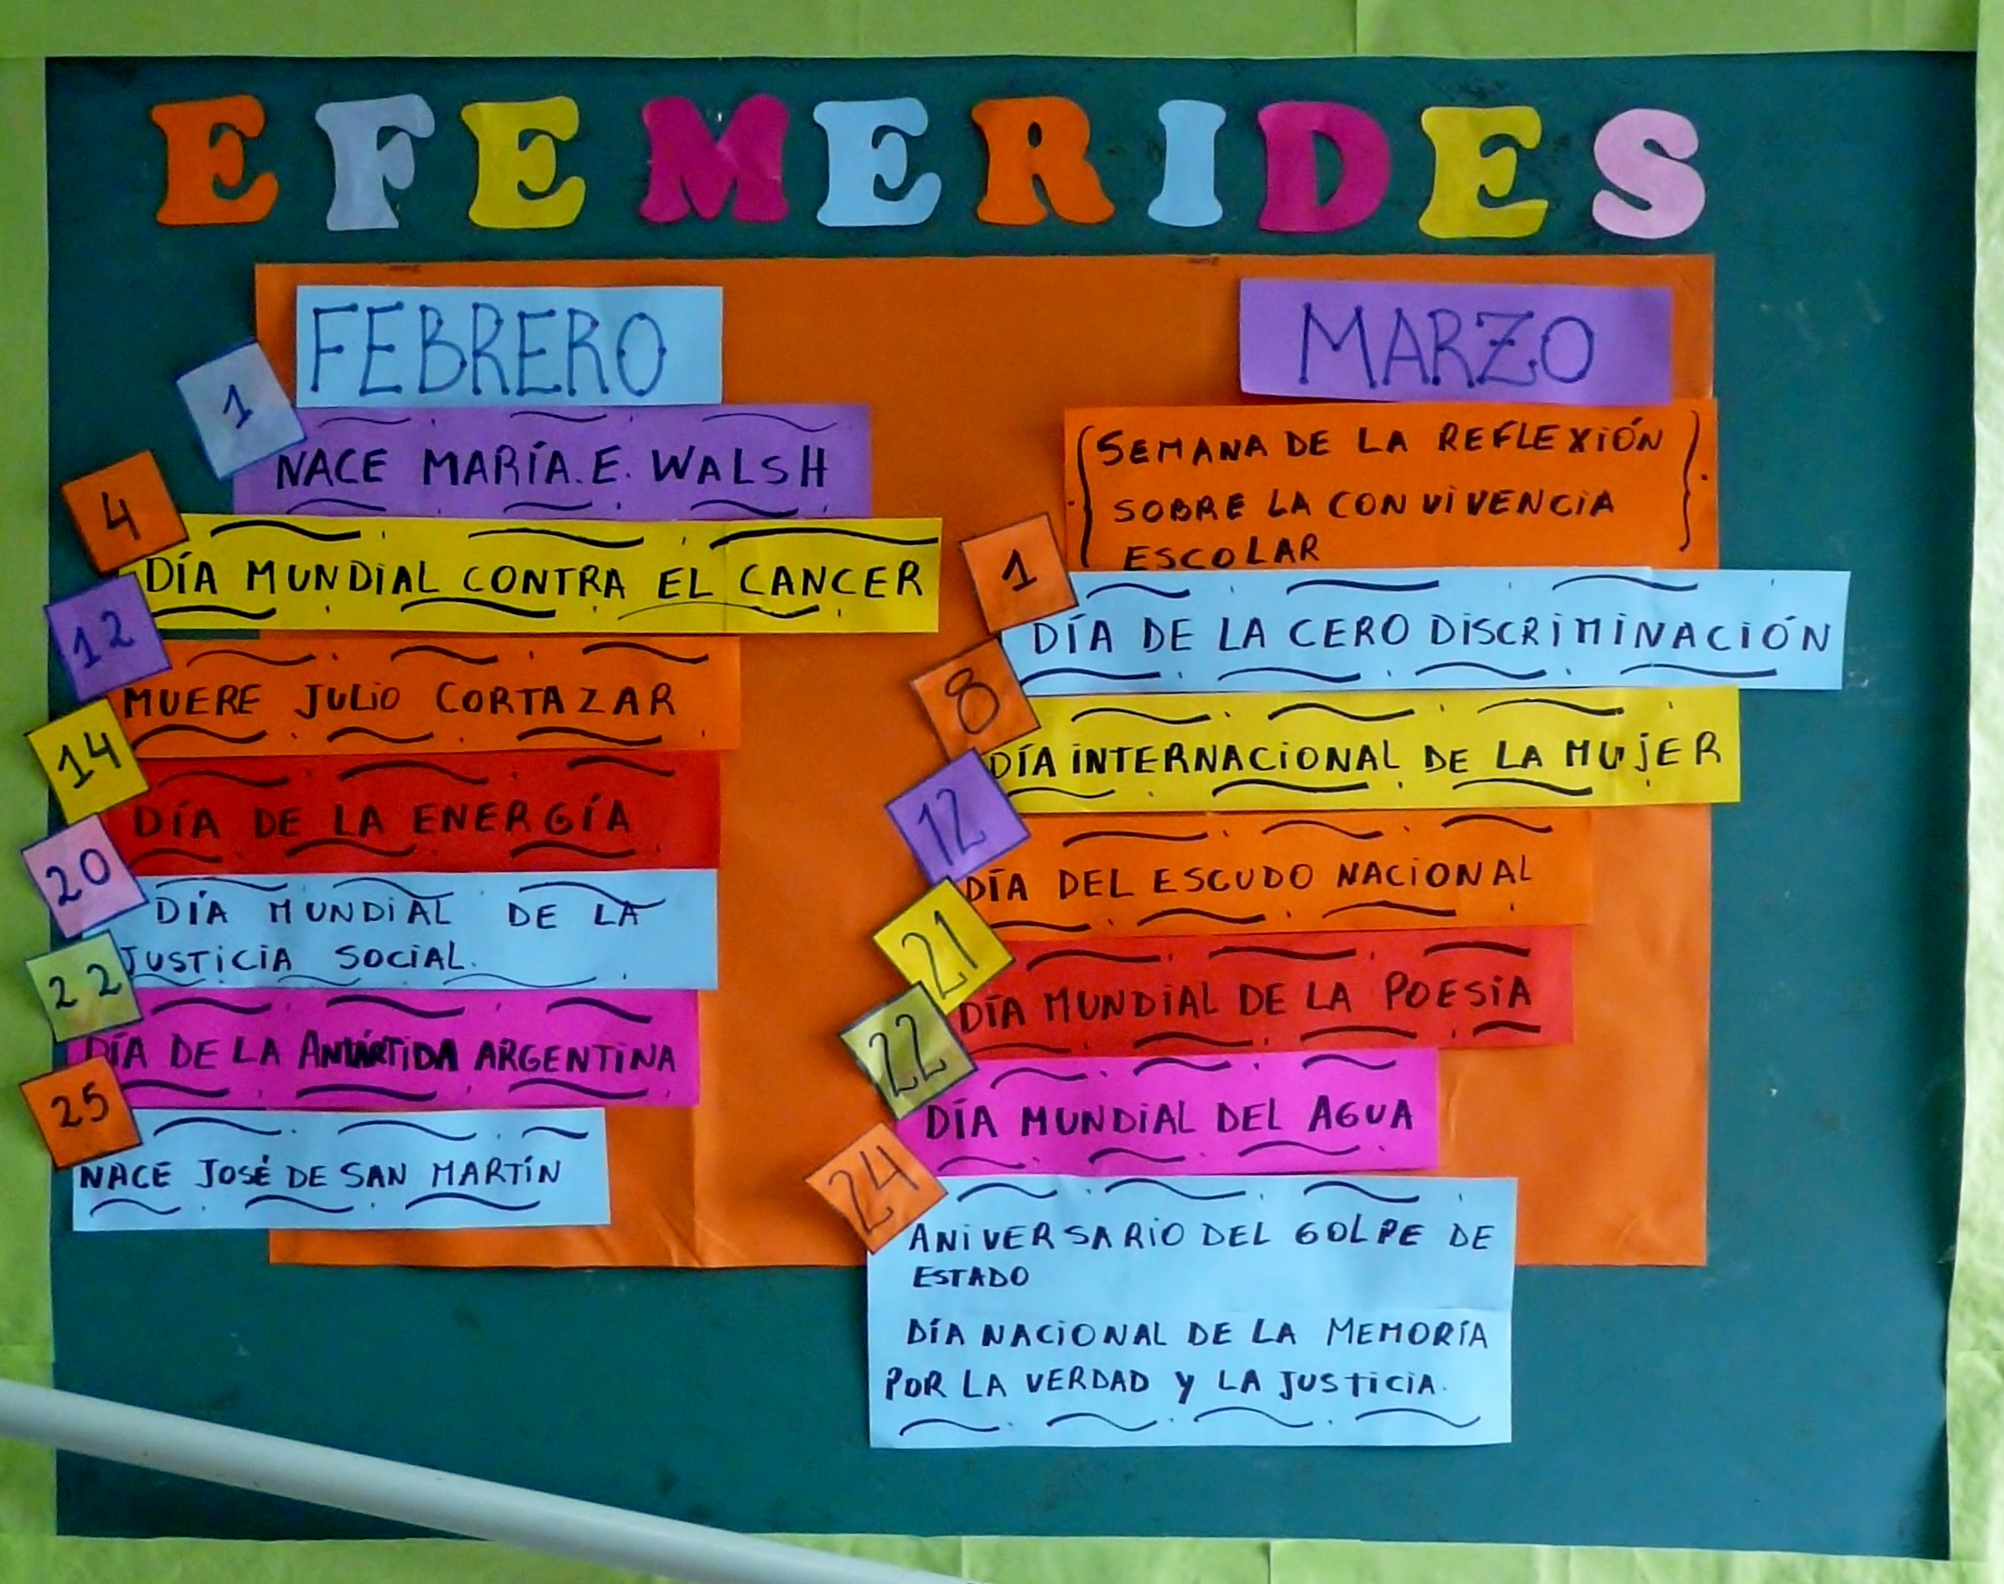 EFEMERIDES
FEBRERO
1
NACE MARÍA.E. WALSH
4
DÍA MUNDIAL CONTRA EL CANCER
12
MUERE JULIO CORTAZAR
14
DÍA DE LA ENERGÍA
20
DÍA MUNDIAL DE LA
JUSTICIA SOCIAL.
22
DÍA DE LA ANTÁRTIDA ARGENTINA
25
NACE JOSÉ DE SAN MARTÍN
MARZO
(SEMANA DE LA REFLEXIÓN
SOBRE LA CONVIVENCIA
ESCOLAR)
1
DÍA DE LA CERO DISCRIMINACIÓN
8
DÍA INTERNACIONAL DE LA MUJER
12
DÍA DEL ESCUDO NACIONAL
21
DÍA MUNDIAL DE LA POESIA
22
DÍA MUNDIAL DEL AGUA
24
ANIVERSARIO DEL GOLPE DE
ESTADO
DÍA NACIONAL DE LA MEMORÍA
POR LA VERDAD Y LA JUSTICIA.